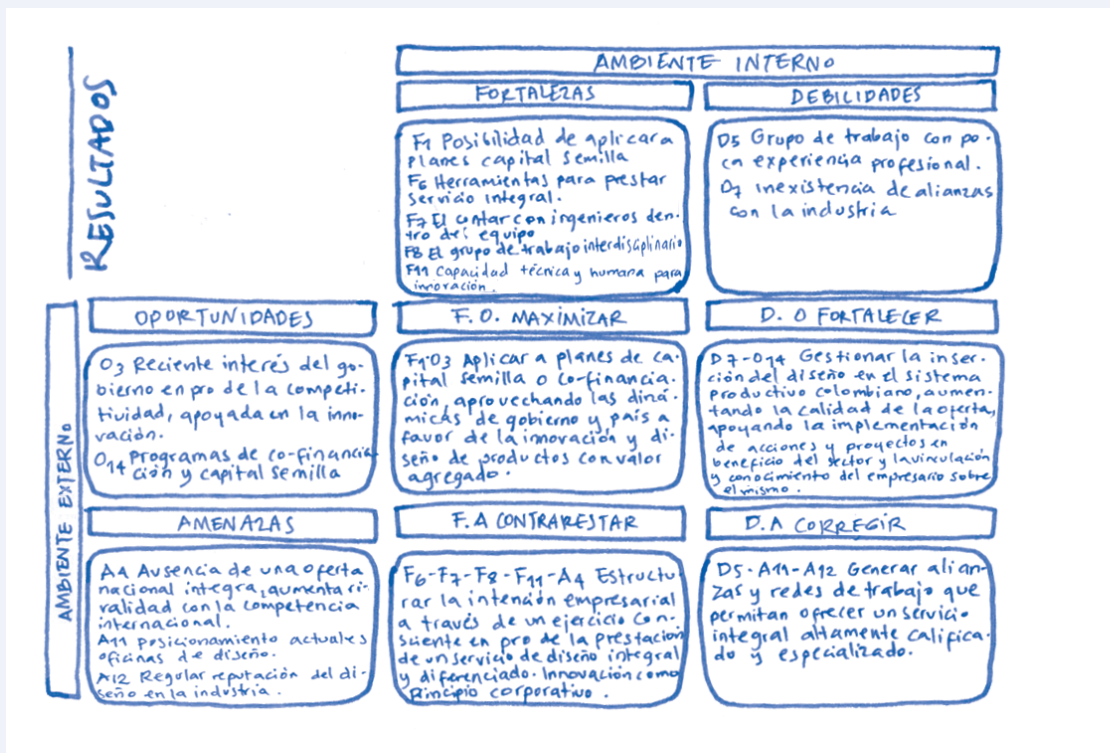 RESULTADOS
AMBIENTE INTERNO
FORTALEZAS
F1 Posibilidad de aplicar a
planes capital semilla
F6 Herramientas para prestar
servicio integral.
F7 El contar con ingenieros den-
tro del equipo
F8 El grupo de trabajo interdisciplinario
F11 Capacidad técnica y humana para
innovación.
DEBILIDADES
D5 Grupo de trabajo con po-
ca experiencia profesional.
D7 inexistencia de alianzas
con la industria
AMBIENTE EXTERNO
OPORTUNIDADES
O3 Reciente interés del go-
bierno en pro de la competi-
tividad, apoyada en la inno-
vación.
O14 Programas de co-financia
ción y capital semilla
F.O. MAXIMIZAR
F1-O3 Aplicar a planes de ca-
pital semilla o co-financia-
ción, aprovechando las diná-
micas de gobierno y país a
favor de la innovación y di-
seño de productos con valor
agregado.
D.O FORTALECER
D7-O14 Gestionar la inser-
ción del diseño en el sistema
productivo colombiano, aumen-
tando la calidad de la oferta,
apoyando la implementación
de acciones y proyectos en
beneficio del sector y la vinculación
y conocimiento del empresario sobre
el mismo.
AMENAZAS
A4 Ausencia de una oferta
nacional integra, aumenta ri-
validad con la competencia
internacional.
A11 posicionamiento actuales
oficinas de diseño.
A12 Regular reputación del di-
seño en la industria.
F.A CONTRARESTAR
F6-F7-F8-F11-A4 Estructu
rar la intención empresarial
a través de un ejercicio con-
sciente en pro de la prestación
de un servicio de diseño integral
y diferenciado. Innovación como
Principio corporativo.
D.A CORREGIR
D5-A11-A12 Generar alian-
zas y redes de trabajo que
permitan ofrecer un servicio
integral altamente califica-
do y especializado.